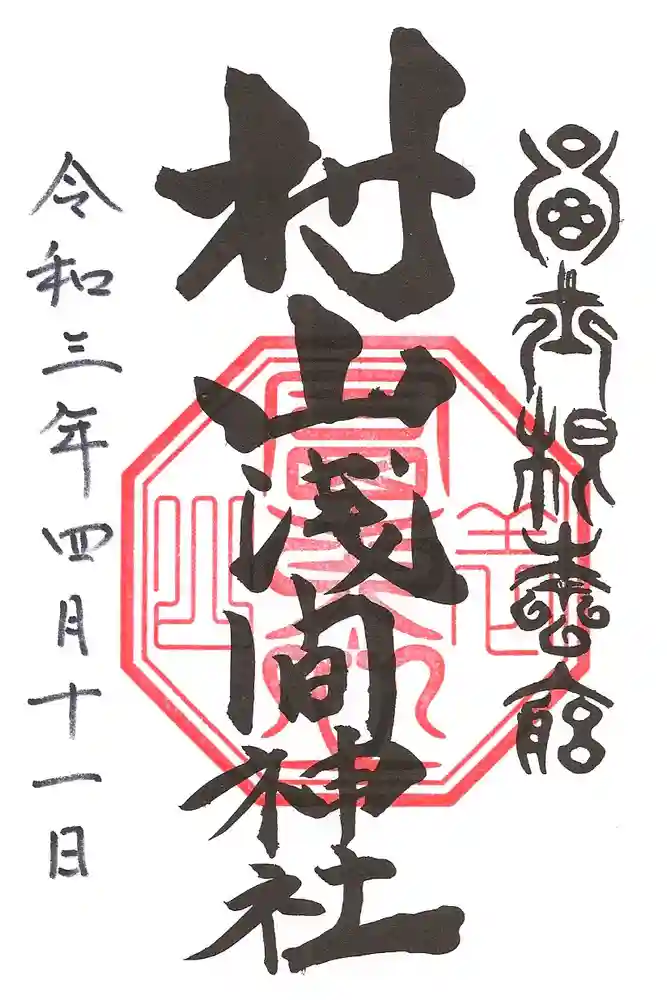 冨士根本宮
村山淺間神社
令和三年四月十一日